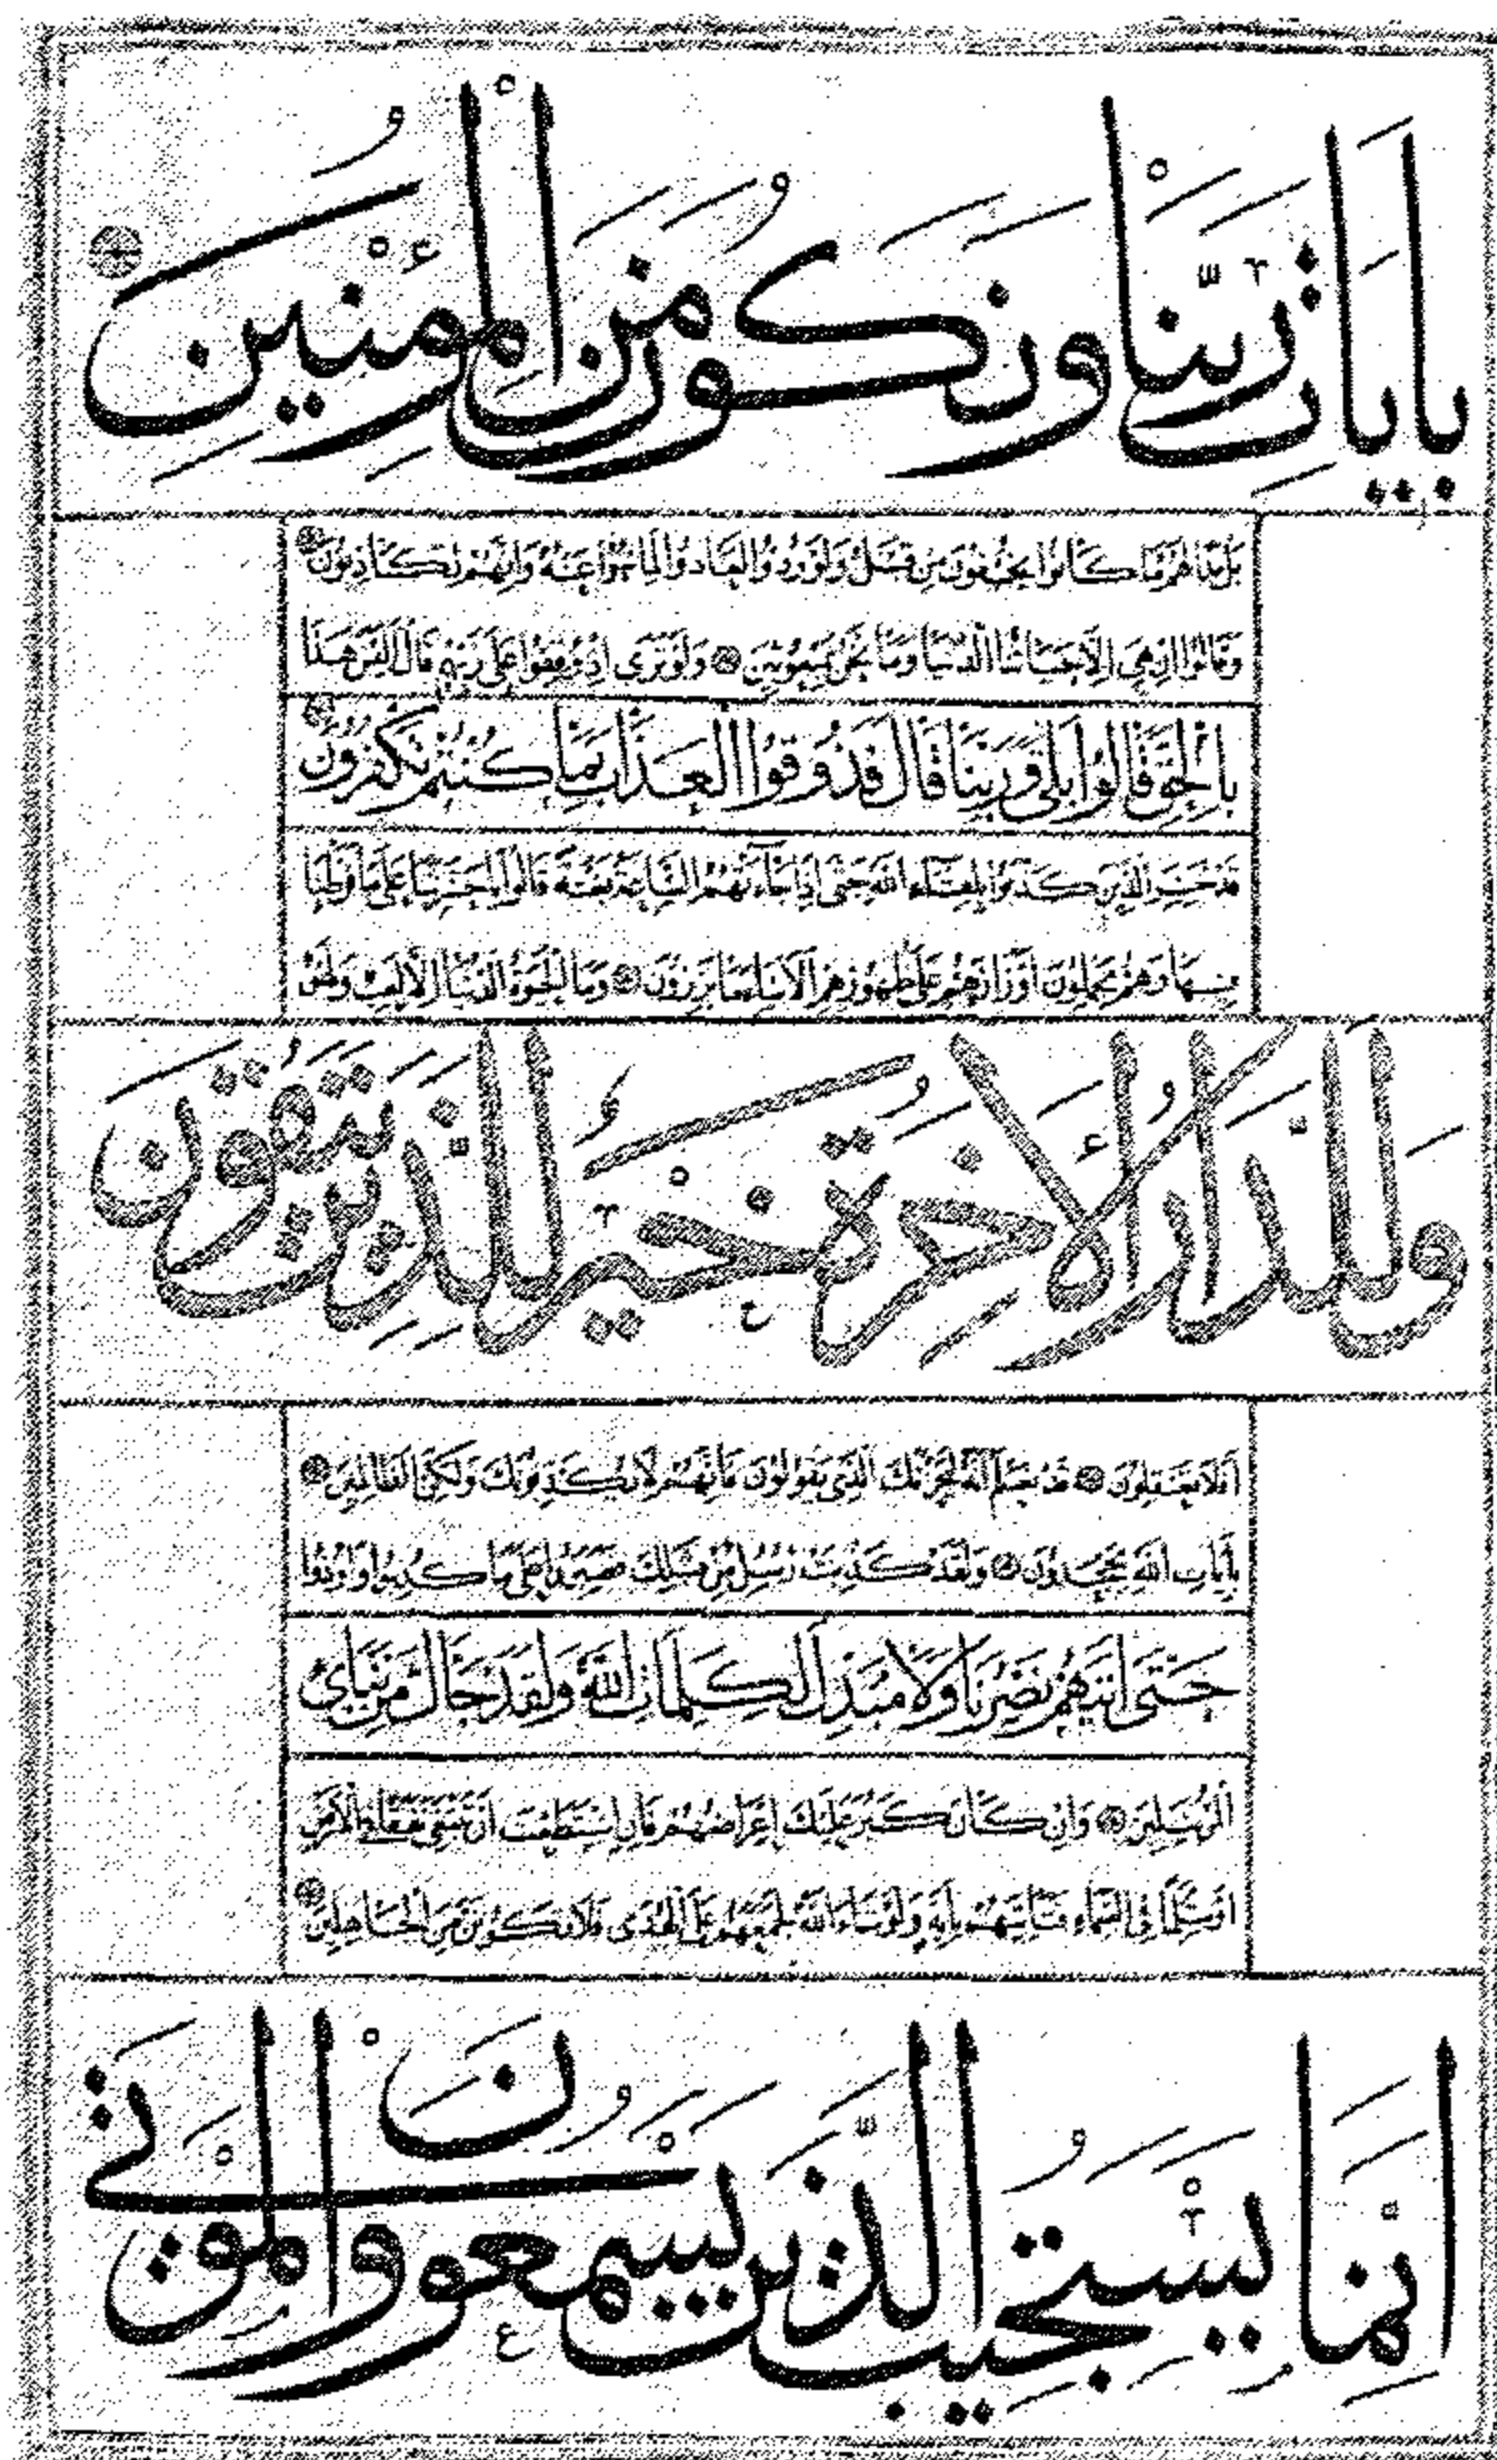 بِآيَاتِ رَبِّنَا وَنَكُونَ مِنَ الْمُؤْمِنِينَ
بَلْ بَدَا لَهُمْ مَا كَانُوا يُخْفُونَ مِنْ قَبْلُ وَلَوْ رُدُّوا لَعَادُوا لِمَا نُهُوا عَنْهُ وَإِنَّهُمْ لَكَاذِبُونَ
وَقَالُوا إِنْ هِيَ إِلَّا حَيَاتُنَا الدُّنْيَا وَمَا نَحْنُ بِمَبْعُوثِينَ وَلَوْ تَرَى إِذْ وُقِفُوا عَلَى رَبِّهِمْ قَالَ أَلَيْسَ هَذَا
بِالْحَقِّ قَالُوا بَلَى وَرَبِّنَا قَالَ فَذُوقُوا الْعَذَابَ بِمَا كُنْتُمْ تَكْفُرُونَ
قَدْ خَسِرَ الَّذِينَ كَذَّبُوا بِلِقَاءِ اللَّهِ حَتَّى إِذَا جَاءَتْهُمُ السَّاعَةُ بَغْتَةً قَالُوا يَا حَسْرَتَنَا عَلَى مَا فَرَّطْنَا
فِيهَا وَهُمْ يَحْمِلُونَ أَوْزَارَهُمْ عَلَى ظُهُورِهِمْ أَلَا سَاءَ مَا يَزِرُونَ وَمَا الْحَيَوةُ الدُّنْيَا إِلَّا لَعِبٌ وَلَهْوٌ
وَلَلدَّارُ الْأَخِرَةُ خَيْرٌ لِلَّذِينَ يَتَّقُونَ
أَفَلَا تَعْقِلُونَ قَدْ نَعْلَمُ إِنَّهُ لَيَحْزُنُكَ الَّذِي يَقُولُونَ فَإِنَّهُمْ لَا يُكَذِّبُونَكَ وَلَكِنَّ الظَّالِمِينَ
بِآيَاتِ اللَّهِ يَجْحَدُونَ وَلَقَدْ كُذِّبَتْ رُسُلٌ مِنْ قَبْلِكَ فَصَبَرُوا عَلَى مَا كُذِّبُوا وَأُوذُوا
حَتَّى أَتَيهُمْ نَصْرُنَا وَلَا مُبَدِّلَ لِكَلِمَاتِ اللَّهِ وَلَقَدْ جَاءَكَ مِنْ نَبَائِ
الْمُرْسَلِينَ وَإِنْ كَانَ كَبُرَ عَلَيْكَ إِعْرَاضُهُمْ فَإِنِ اسْتَطَعْتَ أَنْ تَبْتَغِيَ نَفَقًا فِي الْأَرْضِ
أَوْ سُلَّمًا فِي السَّمَاءِ فَتَأْتِيَهُمْ بِآيَةٍ وَلَوْ شَاءَ اللَّهُ لَجَمَعَهُمْ عَلَى الْهُدَى فَلَا تَكُونَنَّ مِنَ الْجَاهِلِينَ
إِنَّمَا يَسْتَجِيبُ الَّذِينَ يَسْمَعُونَ وَالْمَوْتَى